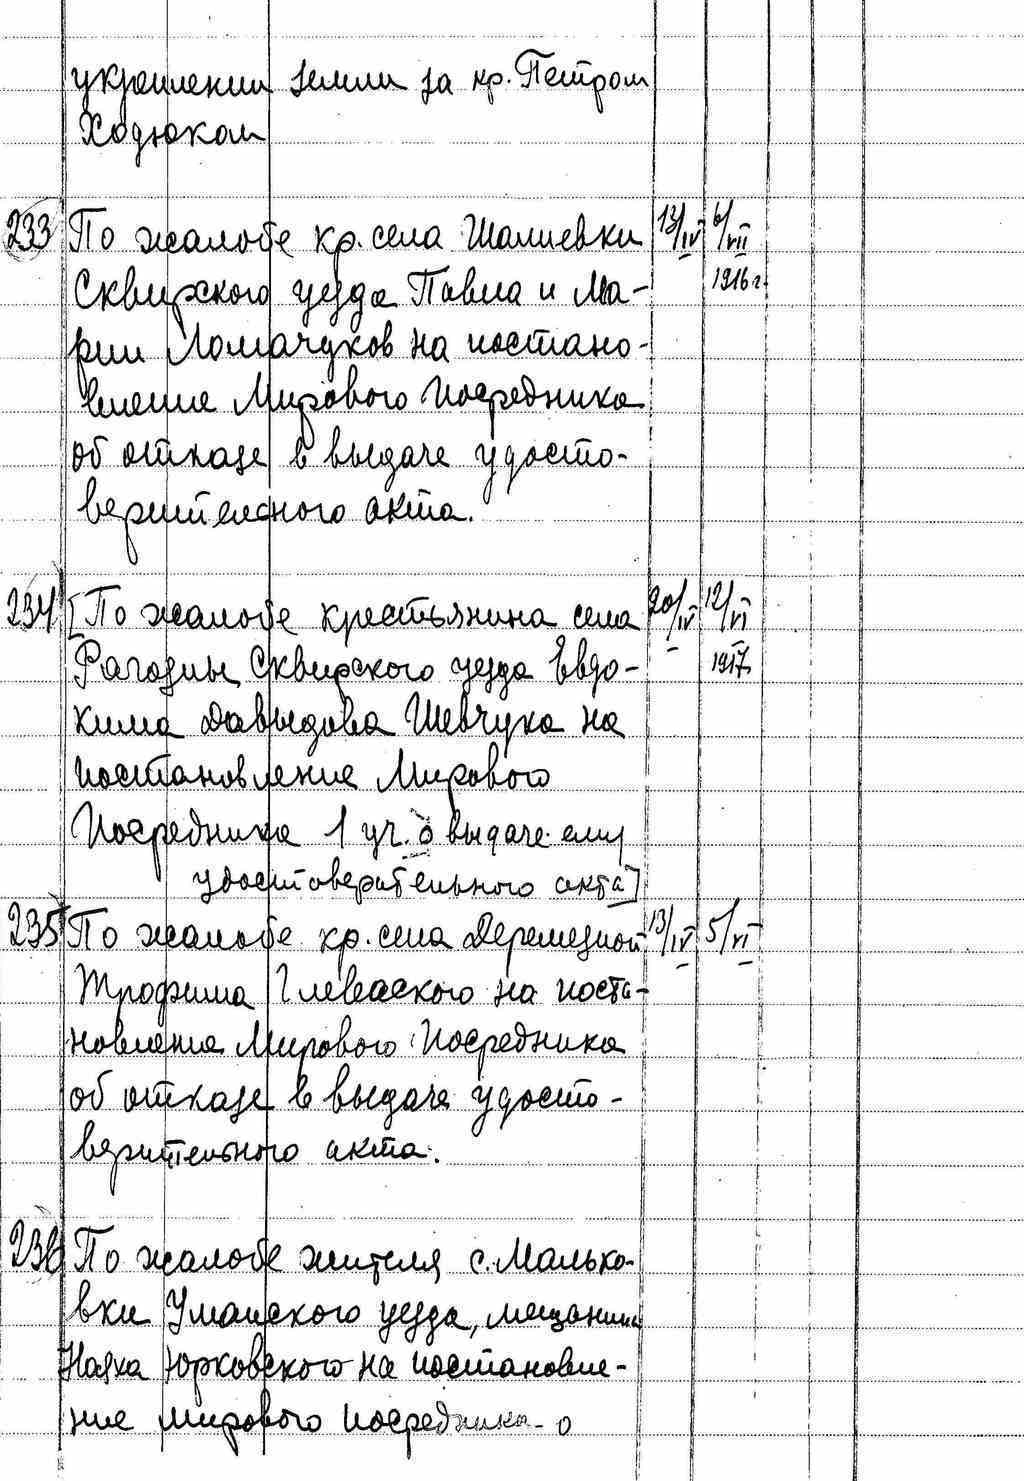 укреплении земли за кр. Петром
Ходюком
233 По жалобе кр. села Шалиевки 13/IV 6/VII
Сквирского уезда Павла и Ма- 1916 г.
рии Ломачуков на постано-
вление Мирового Посредника
об отказе в выдаче удосто-
верительного акта.
234 [По жалобе крестьянина села 20/IV 12/VI
Рагозны Сквирского уезда Евдо- 1917
кима Давыдова Шевчука на
постановление Мирового
Посредника 1 уч. о выдаче ему
удостоверительного акта]
235 По жалобе кр. села Деремезной 13/IV 5/VI
Трофима Глеваского на поста-
новление Мирового Посредника
об отказе в выдаче удосто-
верительного акта.
236 По жалобе жителя с. Малько-
вки Уманского уезда, мещанина
Юрковского на постановле-
ние мирового посредника о